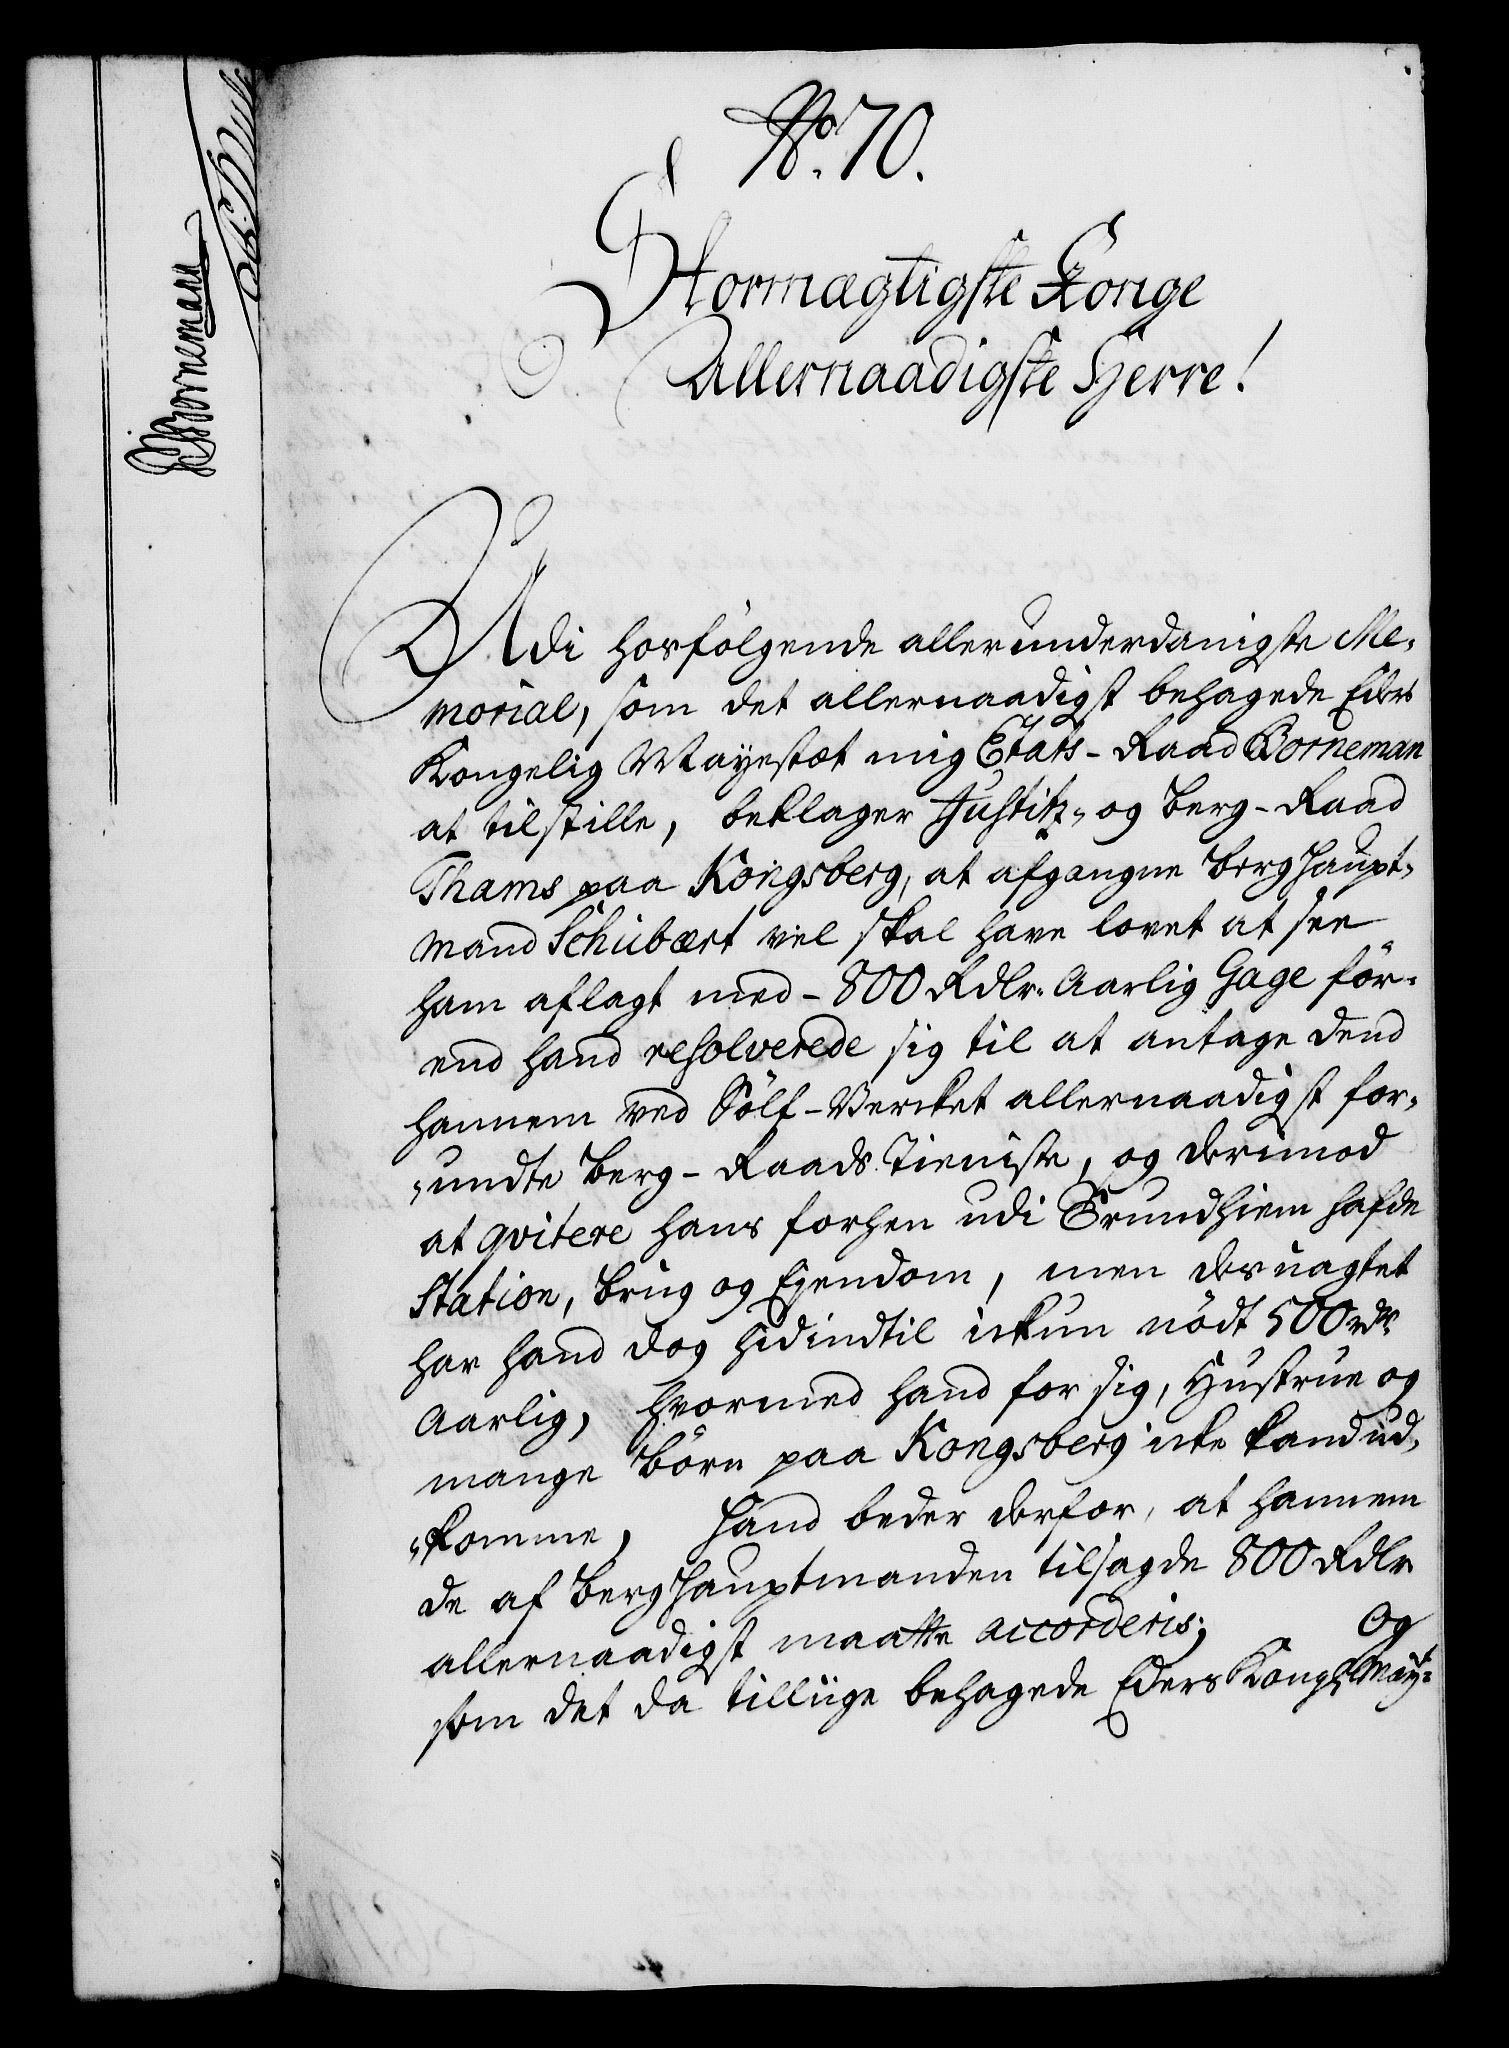 No. 70.
Stormægtigste Konge
Allernaadigste Herre!
Udi hosfölgende allerunderdanigste Me-
morial, som det allernaadigst behagede Eders
Kongelig Mayestæt mig Etats-Raad Borneman
at tilstille, beklager Justitz- og Berg-Raad
Thams paa Kongsberg, at afgangne Berghaupt-
mand Schubært vel skal have lovet at see
ham aflagt med - 800 Rdlr. Aarlig Gage för-
end hand resolverede sig til at antage dend
hannem ved Sölf-Vercket allernaadigst for-
undte Berg-Raads Tieniste, og derimod
at qvitere hans forhen udi Trundhiem hafde
Station, Brug og Ejendom, men des uagtet
har hand dog hidindtil ickun nödt 500 rdr
Aarlig, hvormed hand for sig, Hustrue og
mange Börn paa Kongsberg icke kand ud-
komme, Hand beder derfor, at hannem
de af Berghauptmanden tilsagde 800 Rdlr
allernaadigst maatte accorderis; Og
som det da tilliige behagede Eders Kongl. May:
Borneman